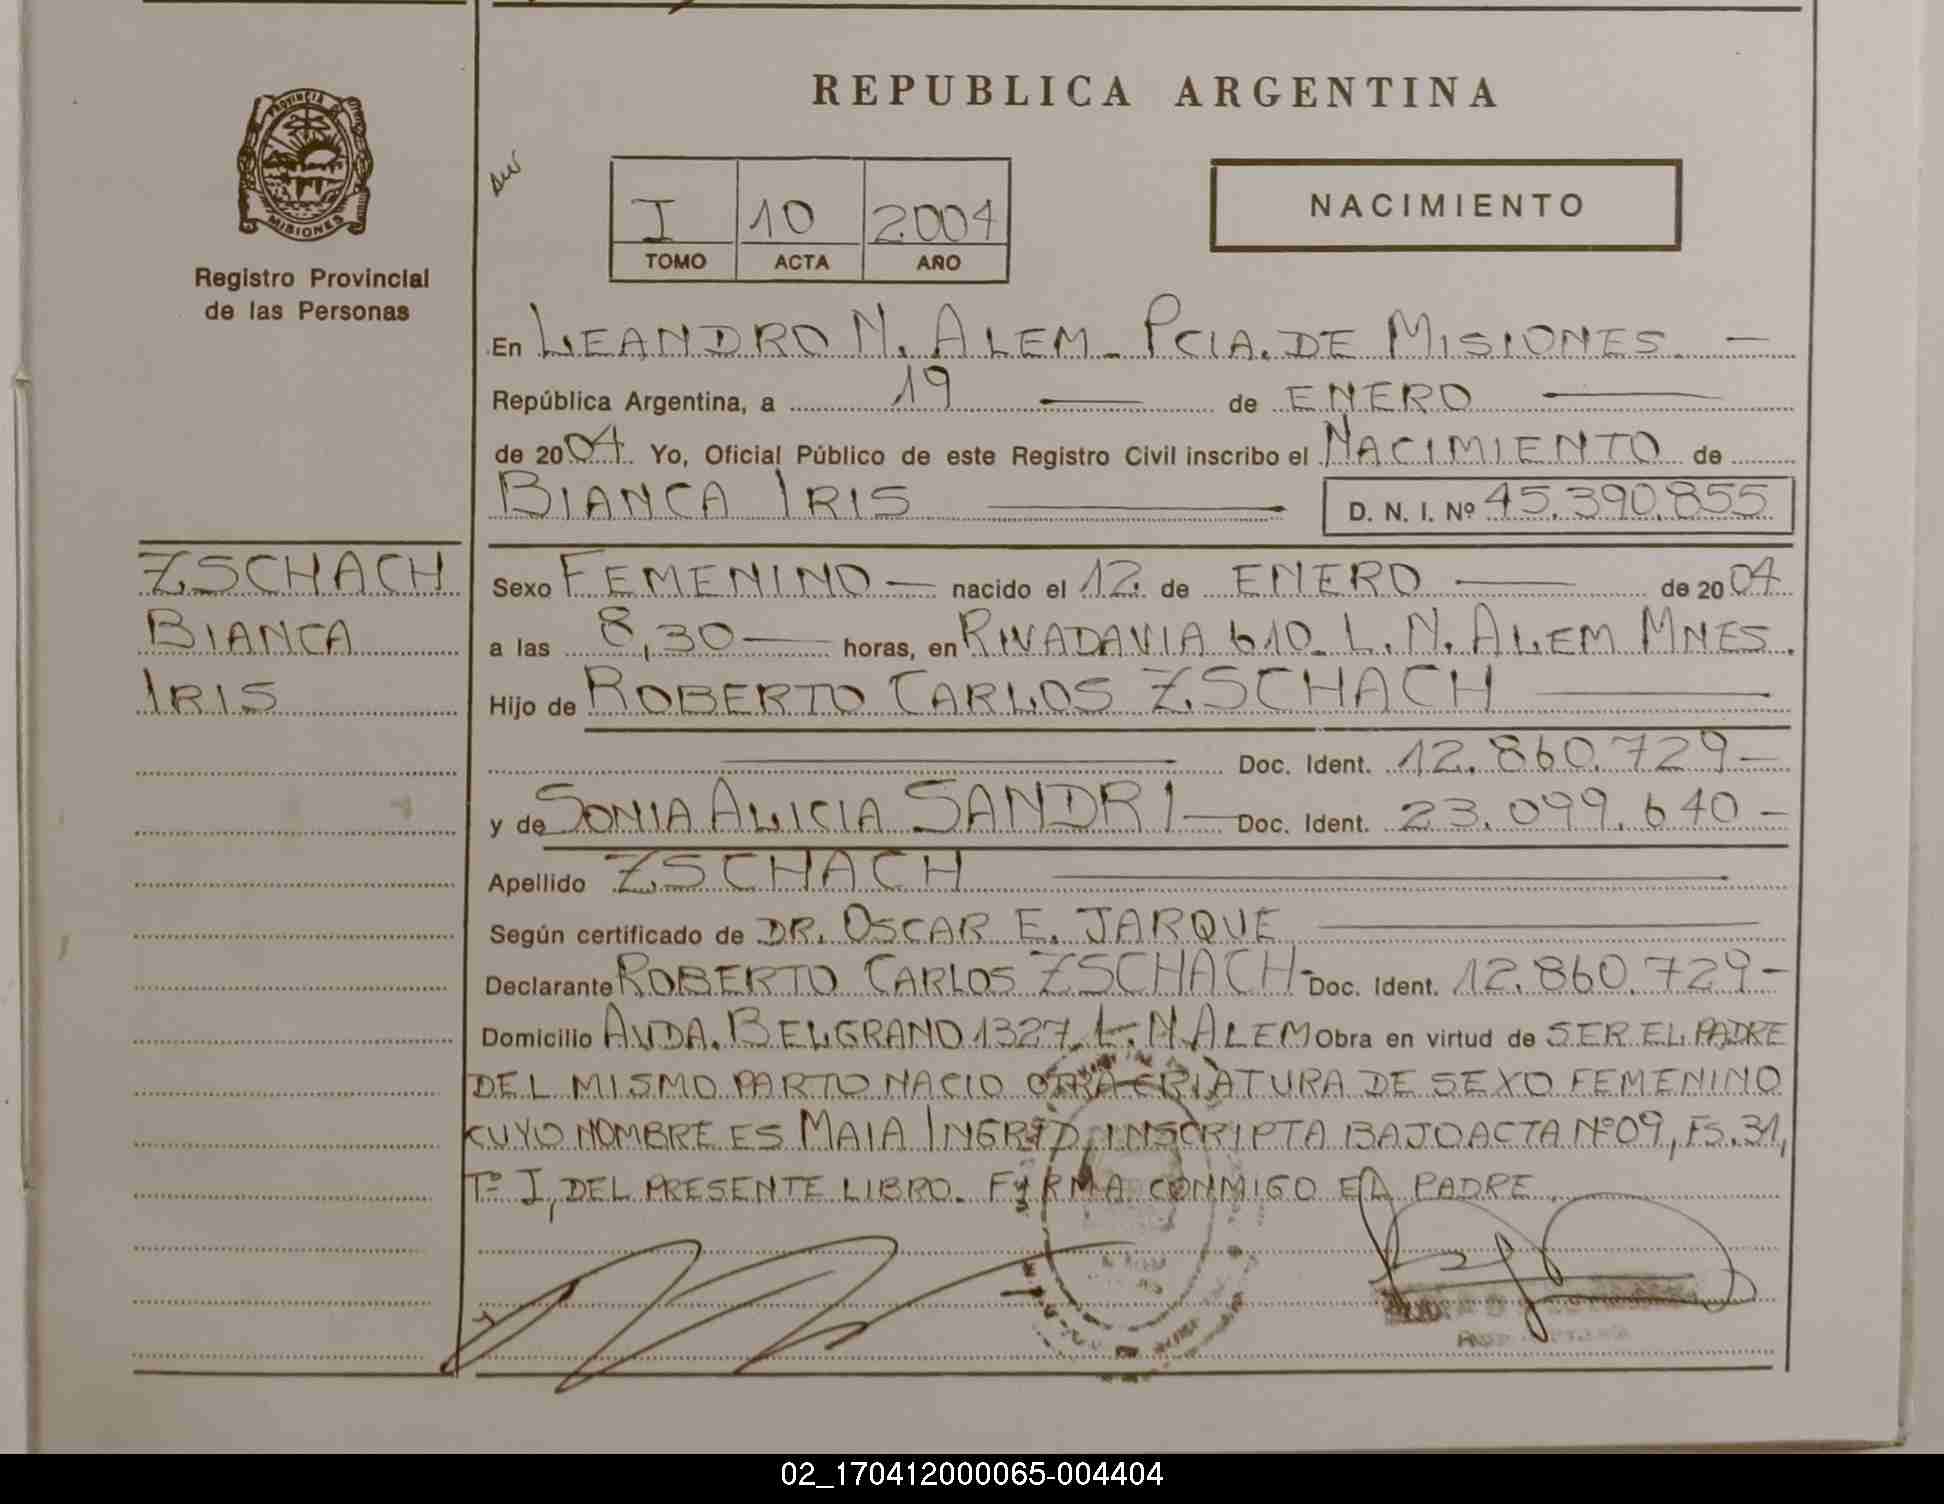 REPUBLICA ARGENTINA
PROVINCIA DE
MISIONES
Registro Provincial
de las Personas
I 10 2004
TOMO ACTA AÑO
NACIMIENTO
En LEANDRO N. ALEM - PCIA. DE MISIONES. —
República Argentina, a 19 — de ENERO —
de 2004. Yo, Oficial Público de este Registro Civil inscribo el NACIMIENTO de
BIANCA IRIS — D. N. I. Nº 45.390.855
ZSCHACH
BIANCA
IRIS
Sexo FEMENINO — nacido el 12 de ENERO — de 2004
a las 8,30 — horas, en RIVADAVIA 610. L. N. ALEM MNES.
Hijo de ROBERTO CARLOS ZSCHACH —
— Doc. Ident. 12.860.729 —
y de SONIA ALICIA SANDRI — Doc. Ident. 23.099.640 —
Apellido ZSCHACH —
Según certificado de DR. OSCAR E. JARQUE —
Declarante ROBERTO CARLOS ZSCHACH - Doc. Ident. 12.860.729 -
Domicilio AVDA. BELGRANO 1327. L. N. ALEM Obra en virtud de SER EL PADRE
DEL MISMO PARTO NACIO OTRA CRIATURA DE SEXO FEMENINO
CUYO NOMBRE ES MAIA INGRID, INSCRIPTA BAJO ACTA Nº 09, FS. 31,
Tº I, DEL PRESENTE LIBRO. FIRMA CONMIGO EL PADRE.
02_170412000065-004404